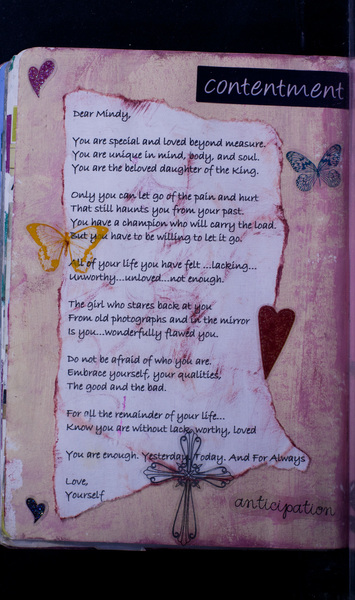 contentment
Dear Mindy,
You are special and loved beyond measure.
You are unique in mind, body, and soul.
You are the beloved daughter of the King.
Only you can let go of the pain and hurt
That still haunts you from your past.
You have a champion who will carry the load.
But you have to be willing to let it go.
All of your life you have felt ...lacking...
unworthy...unloved...not enough.
The girl who stares back at you
From old photographs and in the mirror
Is you...wonderfully flawed you.
Do not be afraid of who you are.
Embrace yourself, your qualities,
The good and the bad.
For all the remainder of your life...
Know you are without lack, worthy, loved
You are enough. Yesterday. Today. And For Always
Love,
Yourself
anticipation